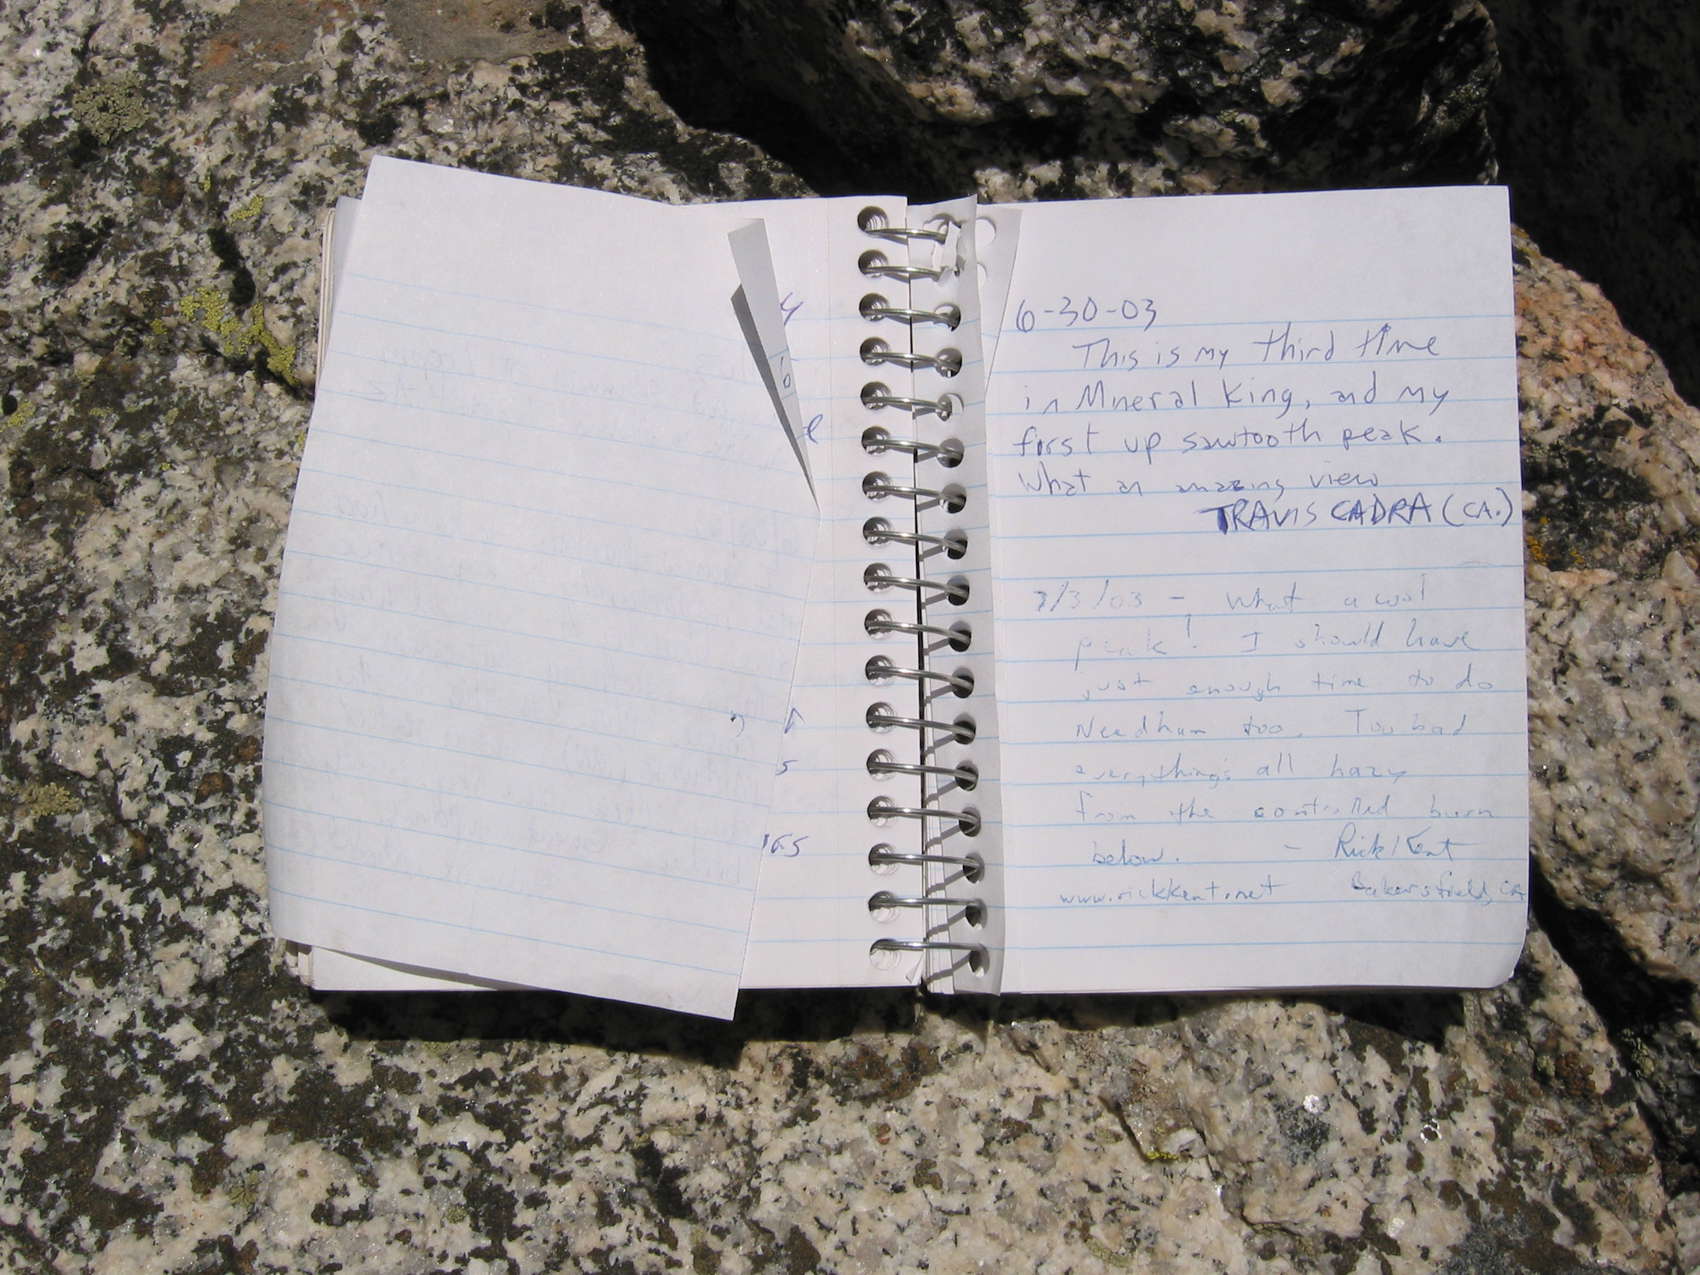 6-30-03
This is my third time
in Mineral King, and my
first up sawtooth peak.
What an amazing view
TRAVIS CADRA (CA.)
7/3/03 - What a cool
peak! I should have
just enough time to do
Needham too. Too bad
everything's all hazy
from the controlled burn
below. - Rick Kent
www.rickkent.net Bakersfield, CA